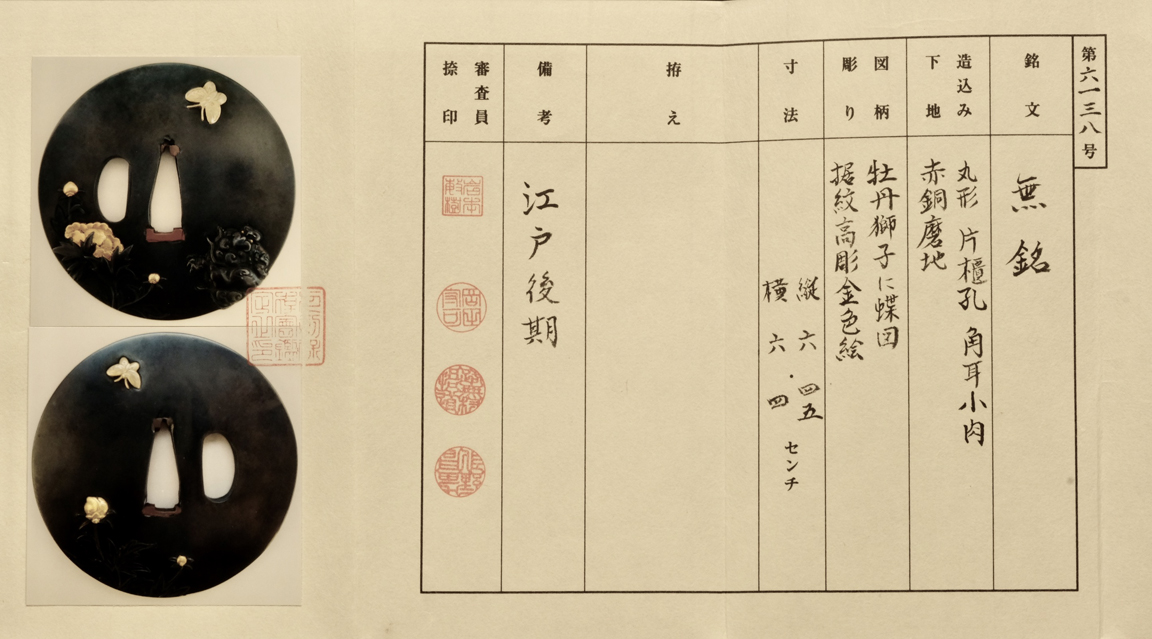 第六一三八号
銘文
無銘
造込み
下地
丸形 片櫃孔 角耳小肉
赤銅磨地
図柄
彫り
牡丹獅子に蝶図
据紋高彫金色絵
寸法
縦 六・四五
横 六・四
センチ
拵え
備考
江戸後期
審査員
捺印